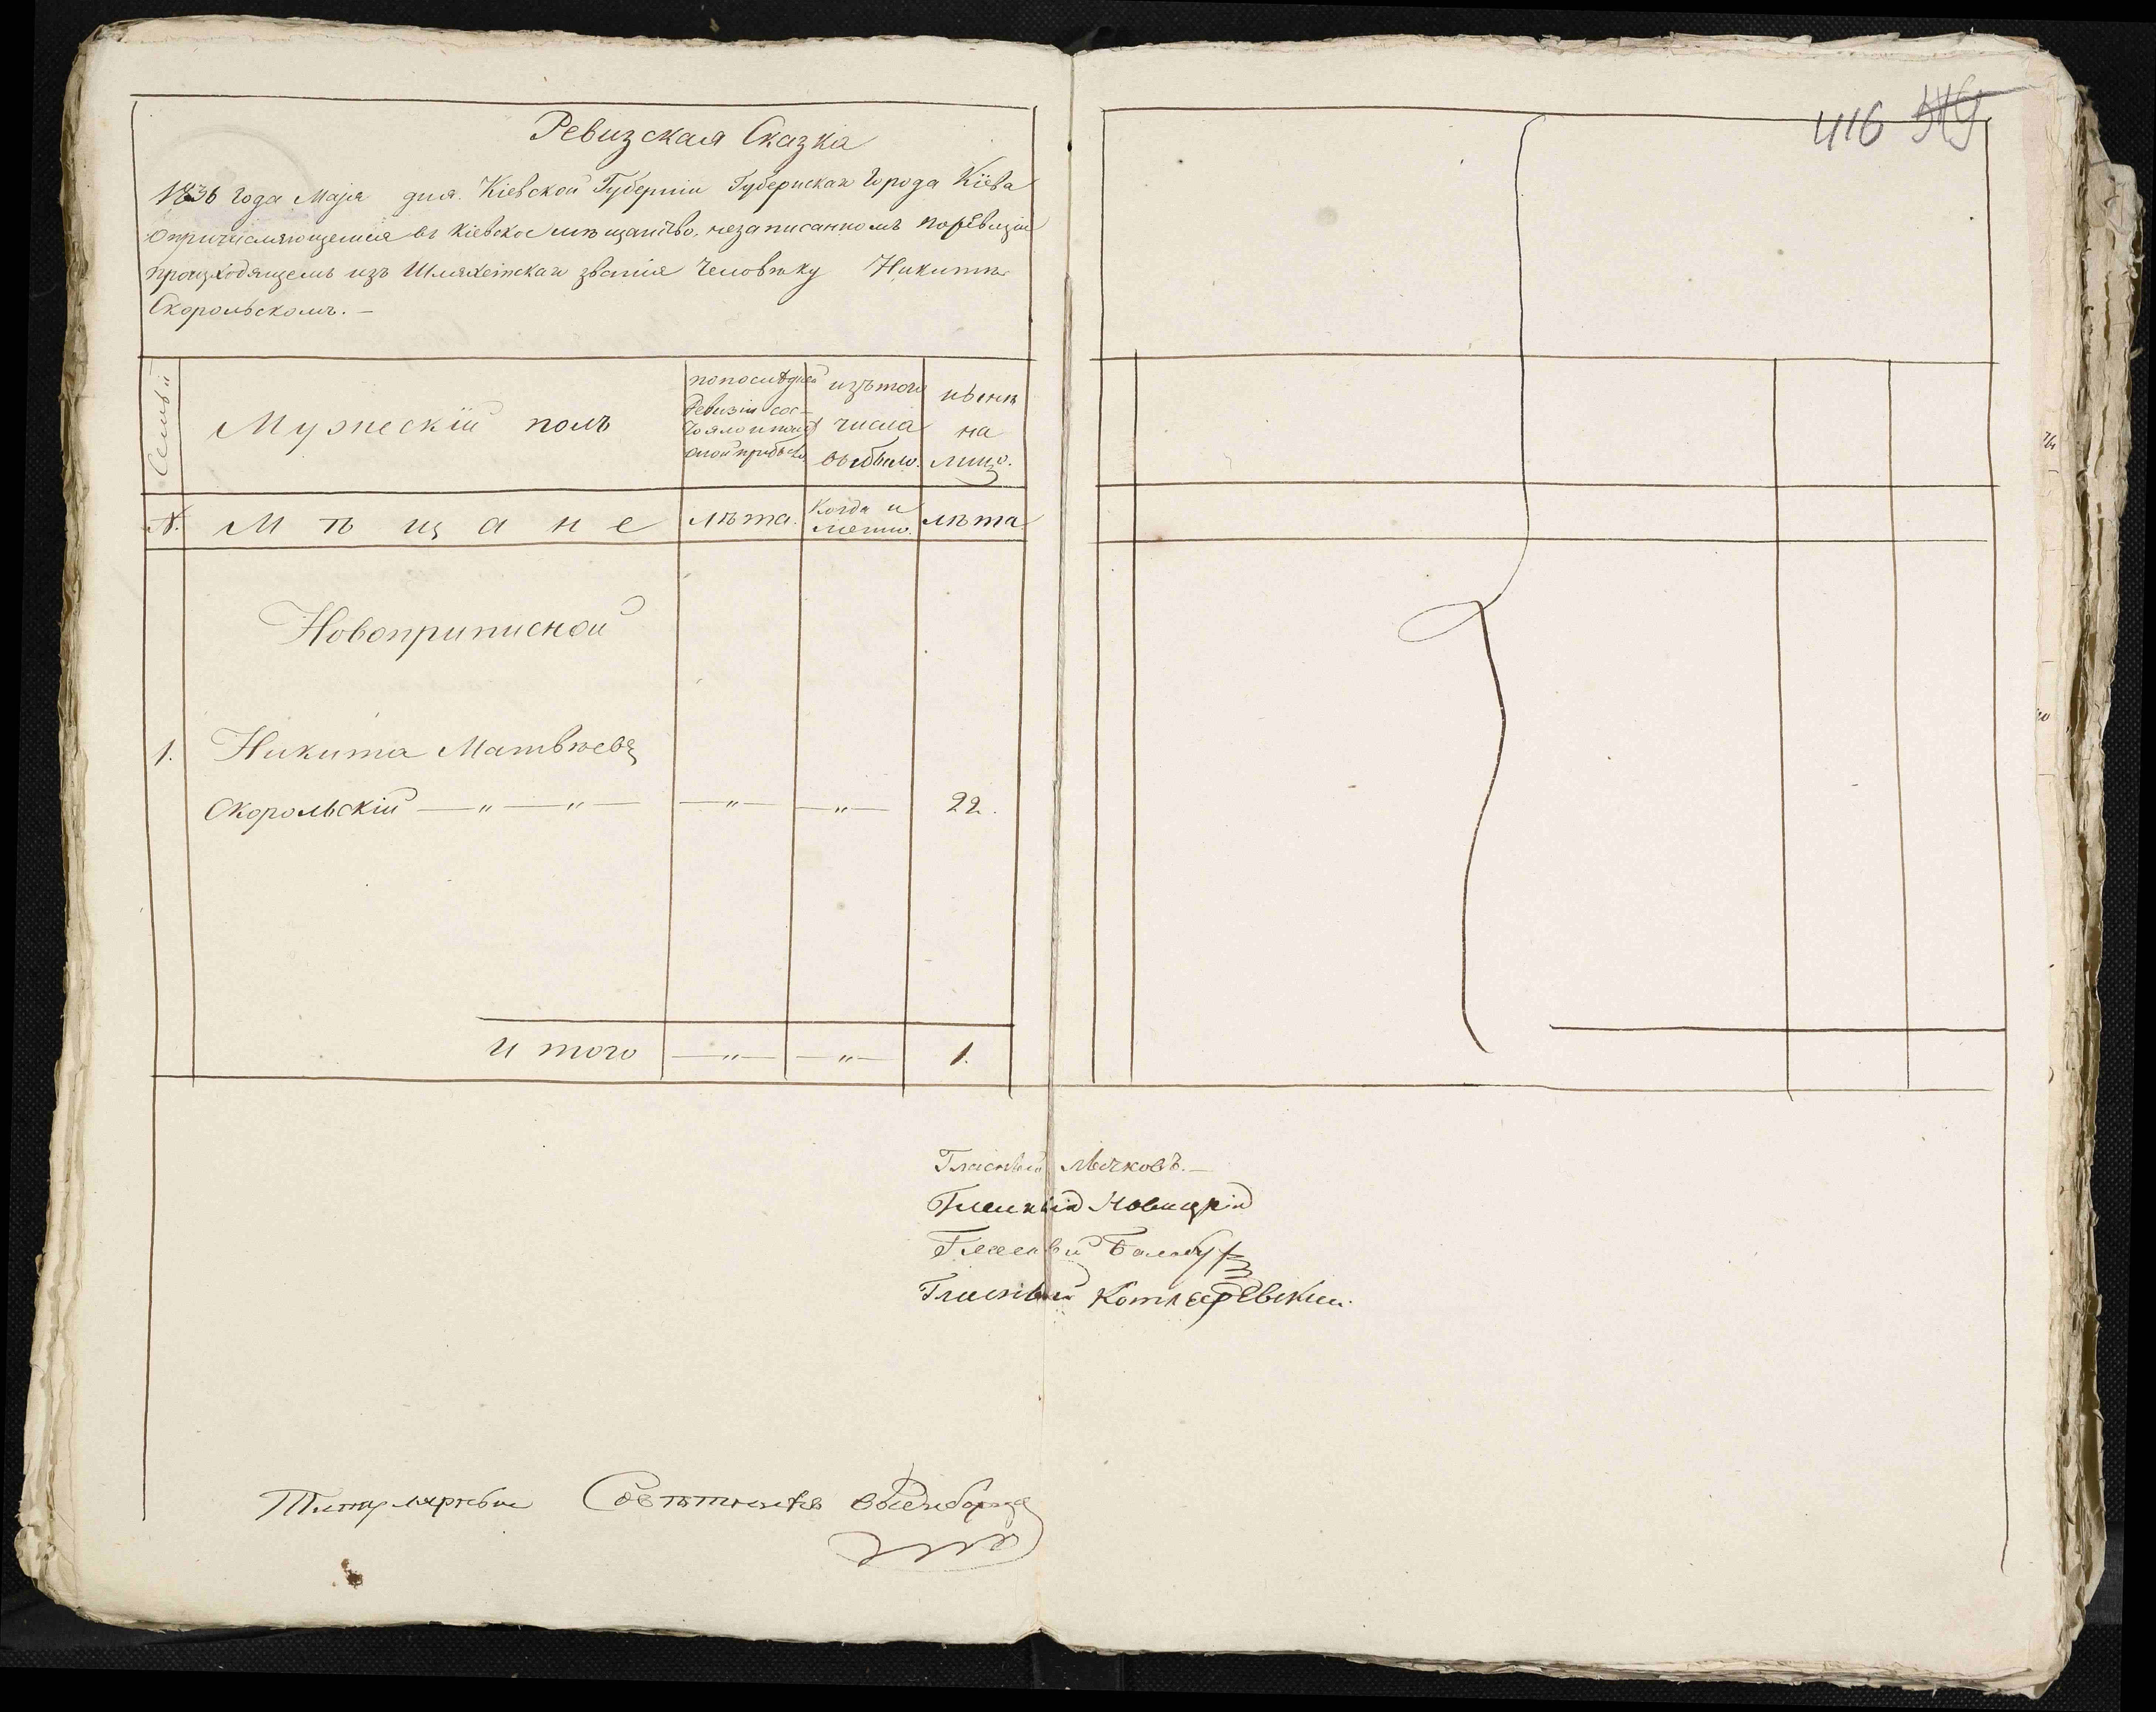 416 549
Ревизская Сказка
1836 года Маія дня. Кіевской Губерніи Губернскаго Города Кіева
Опричисляющемся въ Кіевское мѣщанство, незаписанномъ поревизіи
происходящемъ изъ Шляхетскаго званія человѣку Никитѣ
Скорольскомъ. —
Семьи
Мужескій полъ
попослѣдней Ревизіи состояло и послѣ оной прибыло
изътого числа выбыло.
нынѣ на лицо.
№. Мѣщане лѣта. Когда и лѣта
Новоприписной
1. Никита Матвѣевъ
Скорольскій — " — " — — " — — " — 22.
И того — " — — " — 1.
Гласный Лычковъ. —
Гласный Новицкій
Гласный
Гласный Котляревскій.
Титулярный Совѣтникъ